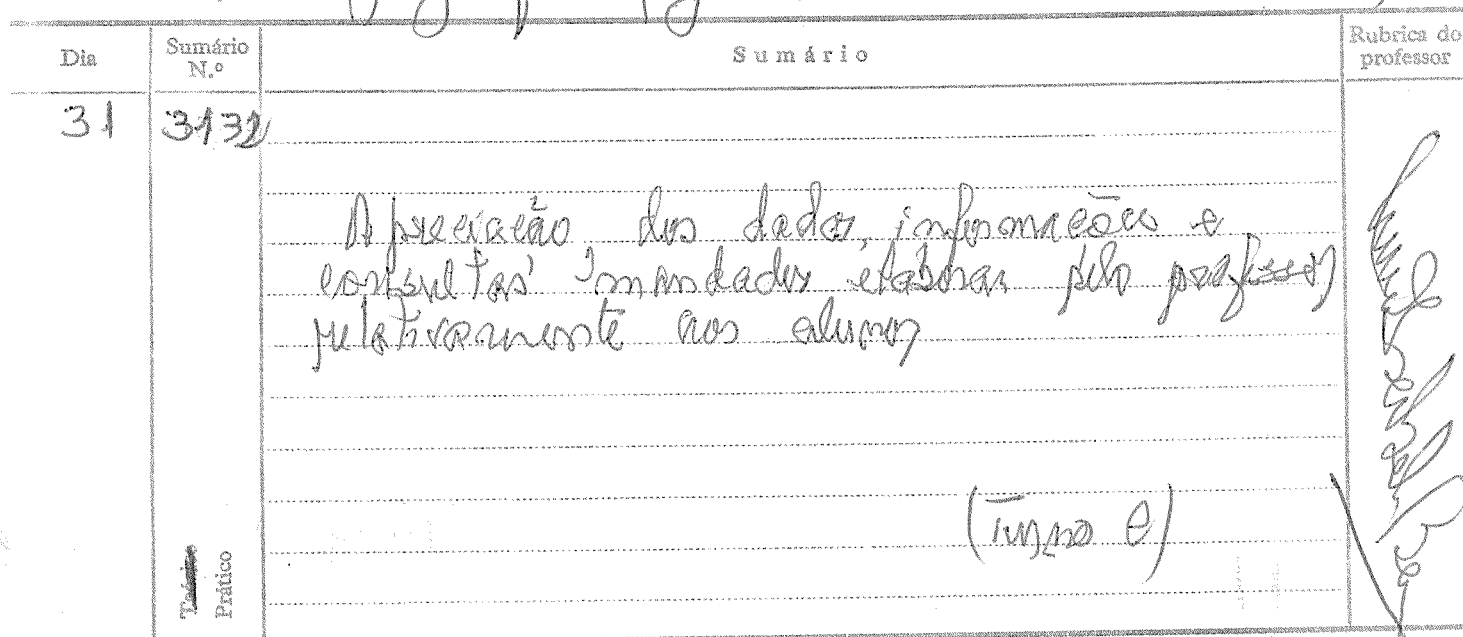 Dia
Sumário
N.º
Sumário
Rubrica do
professor
31
3132
Apreciação dos dados, informações e
consultas mandados elaborar pelo professor
relativamente aos alunos
(Turma C)
Teórico
Prático